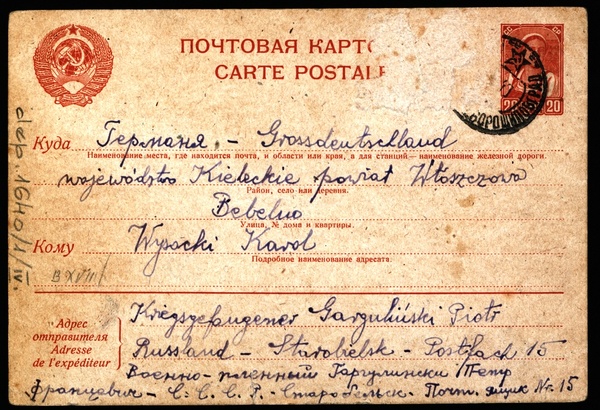 ПОЧТОВАЯ КАРТО
CARTE POSTALE
20 20
ВОРОШИЛОВГРАД
Куда Германя - Grossdeutschland
Наименование места, где находится почта, и области или края, а для станций—наименование железной дороги.
województwo Kieleckie powiat Włoszczowa
Район, село или деревня.
Bebelno
Улица, № дома и квартиры.
Кому Wysocki Karol
Подробное наименование адресата.
dep. 1640/1/IV.
B XVIII
Адрес отправителя
Adresse de l'expéditeur
Kriegsgefangener Garguliński Piotr
Russland - Starobielsk - Postfach 15
Военно-пленный Гаргулински Петр
Францевич - С. С. С. Р. - Старобельск. Почт. ящик Nr. 15